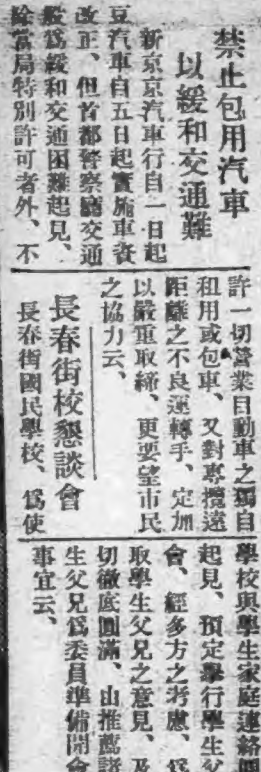 禁止包用汽車
以緩和交通難
新京京汽車行自一日起
豆汽車自五日起實施車資
改正、但首都警察廳交通
股爲緩和交通困難起見、
除當局特別許可者外、不
許一切營業自動車之獨自
租用或包車、又對專攬遠
距離之不良運轉手、定加
以嚴重取締、更要望市民
之協力云、
長春街校懇談會
長春街國民學校、爲使
學校與學生家庭連絡
起見、預定舉行學生父
會、經多方之考慮、爲
取學生父兄之意見、及
切徹底圓滿、由推薦
生父兄爲委員準備開會
事宜云、